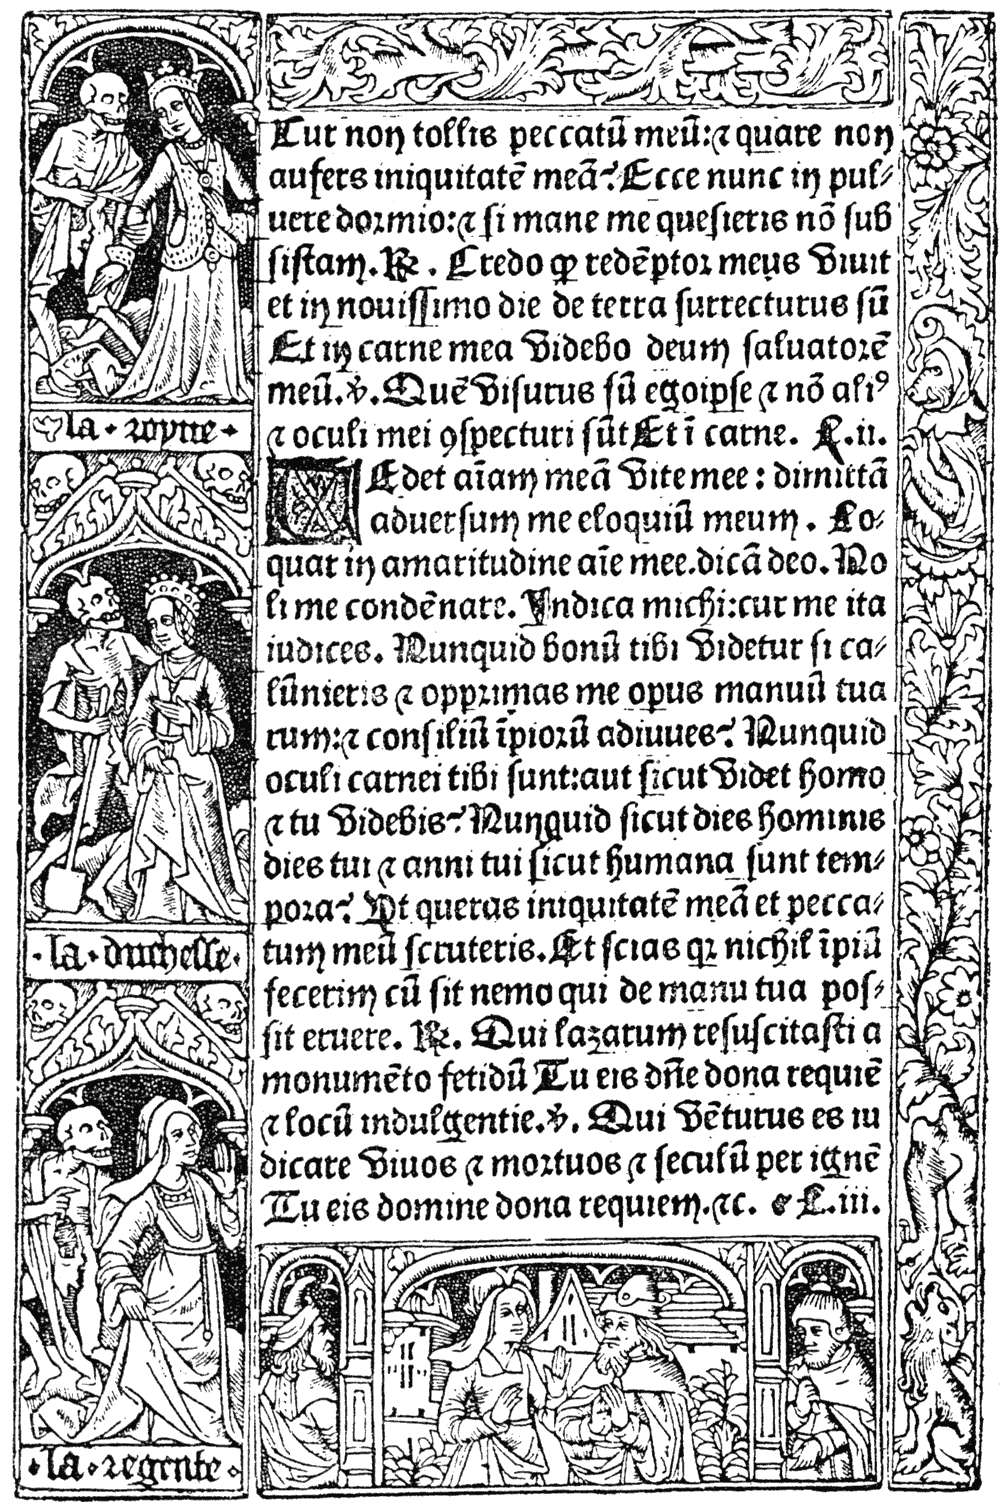 Cur non tollis peccatū meū: ⁊ quare non
aufers iniquitatē meā? Ecce nunc in pul⸗
uere dormio: ⁊ si mane me quesieris nō sub
sistam. ℟. Credo ꝙ redēptor meus viuit
et in nouissimo die de terra surrecturus sū
Et in carne mea videbo deum saluatorē
meū. ℣. Quē visurus sū ego ipse ⁊ nō aliꝰ
⁊ oculi mei ꝯspecturi sūt Et ī carne. L. ii.
TEdet aīam meā vite mee: dimittā
aduersum me eloquiū meum. Lo⸗
quar in amaritudine aīe mee. dicā deo. No
li me condēnare. Indica michi: cur me ita
iudices. Nunquid bonū tibi videtur si ca⸗
lūnieris ⁊ opprimas me opus manuū tua
rum: ⁊ consiliū īpiorū adiuues? Nunquid
oculi carnei tibi sunt: aut sicut videt homo
⁊ tu videbis? Nunquid sicut dies hominis
dies tui ⁊ anni tui sicut humana sunt tem⸗
pora? Ut queras iniquitatē meā et pecca⸗
tum meū scruteris. Et scias qꝛ nichil īpiū
fecerim cū sit nemo qui de manu tua pos⸗
sit eruere. ℟. Qui lazarum resuscitasti a
monumēto fetidū Tu eis dn̄e dona requiē
⁊ locū indulgentie. ℣. Qui vēturus es iu
dicare viuos ⁊ mortuos ⁊ seculū per ignē
Tu eis domine dona requiem. ⁊c. L. iii.
la royne
la duchesse
la regente